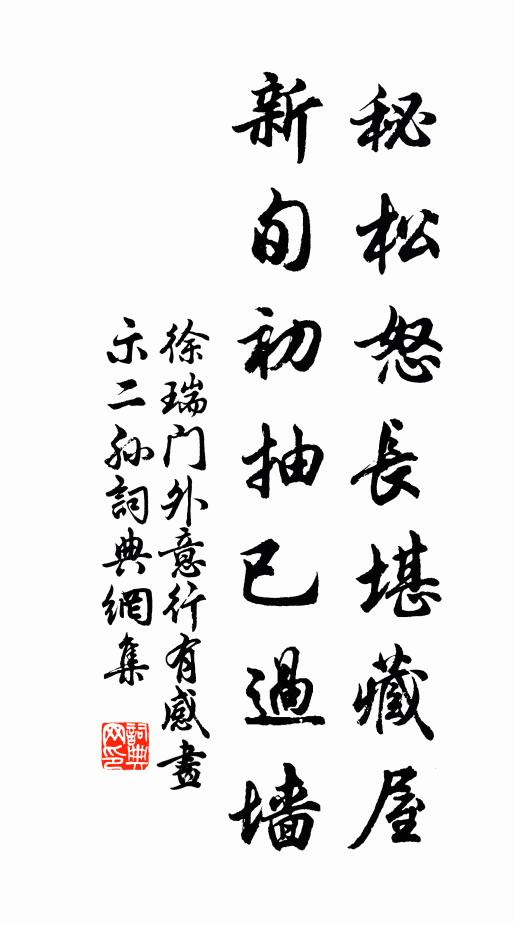 秘松怒長堪藏屋
新旬初抽已過墻
徐瑞门外意行有感畫
示二孙詞典網集
詞典网印